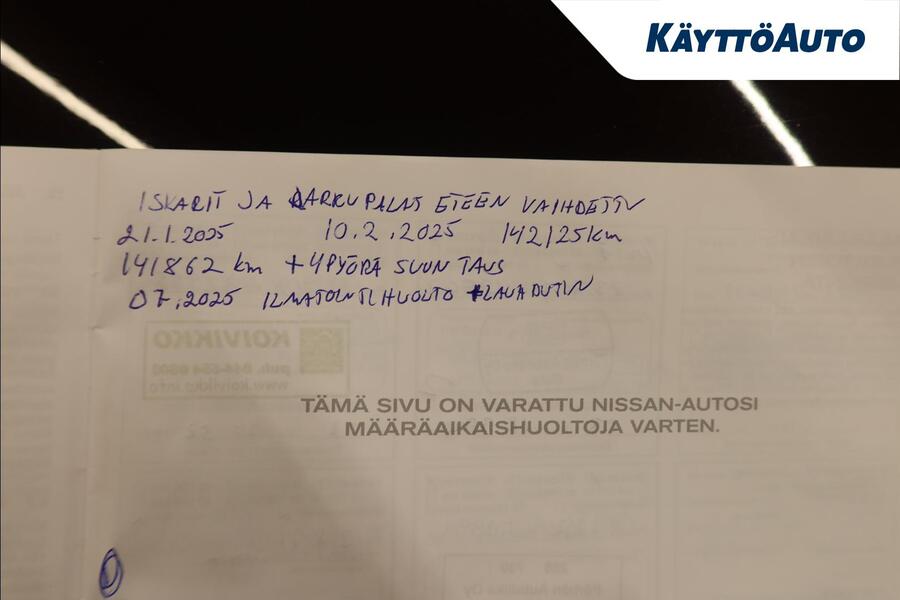 KÄYTTÖAUTO
ISKARIT JA JARRUPALAT ETEEN VAIHDETTU
21.1.2025 10.2.2025 142125km
141862 km + 4PYÖRÄ SUUNTAUS
07.2025 ILMATOINTIHUOLTO
TÄMÄ SIVU ON VARATTU NISSAN-AUTOSI
MÄÄRÄAIKAISHUOLTOJA VARTEN.